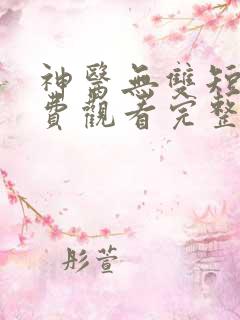 神醫無雙短
費觀看完整
彤萱